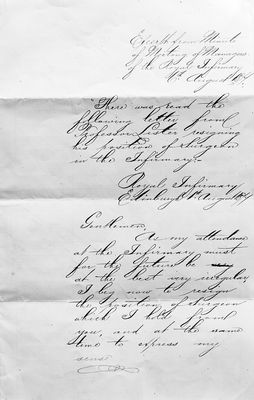 Excerpt from Minute
of Meeting of Managers
of the Royal Infirmary
August
There was read the
following letter from
Professor Lister resigning
his position of Surgeon
in the Infirmary.
Royal Infirmary
Edinburgh August
Gentlemen,
As my attendance
at the Infirmary must
for the future be
at the best very irregular
I beg now to resign
the position of Surgeon
which I hold from
you, and at the same
time to express my
sense